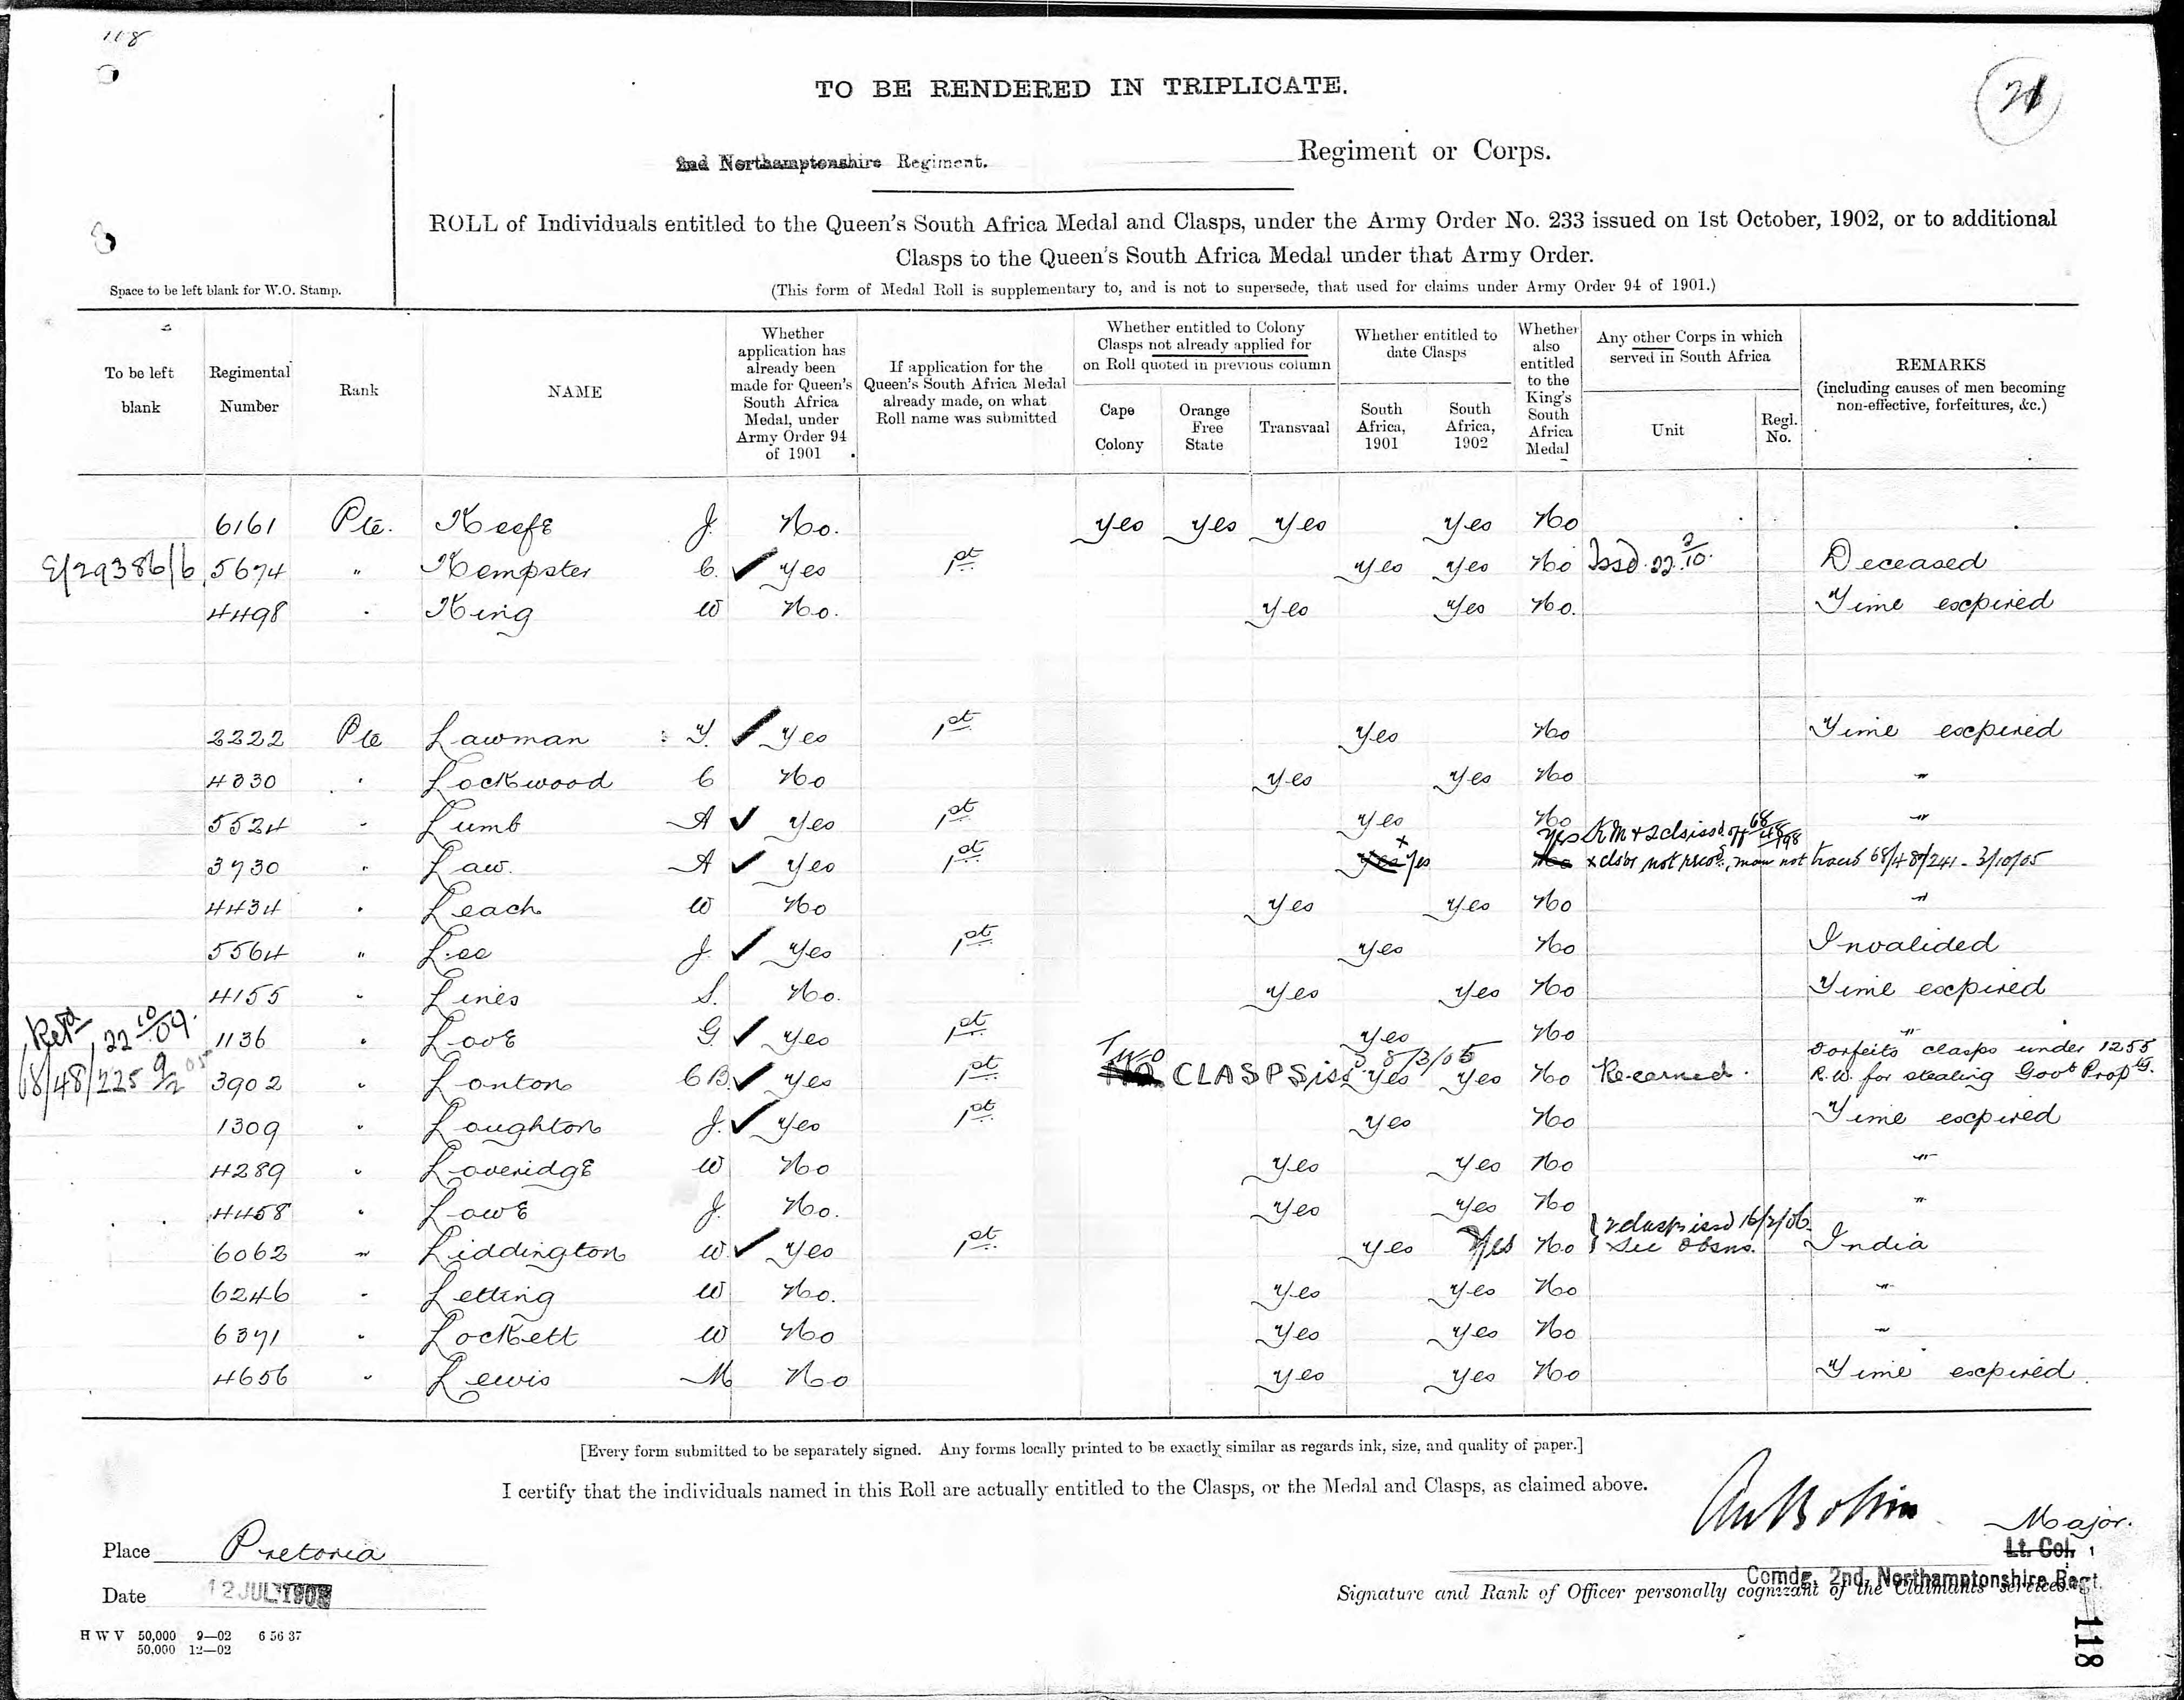 118
21
TO BE RENDERED IN TRIPLICATE.
2nd Northamptonshire Regiment. Regiment or Corps.
ROLL of Individuals entitled to the Queen's South Africa Medal and Clasps, under the Army Order No. 233 issued on 1st October, 1902, or to additional
Clasps to the Queen's South Africa Medal under that Army Order.
Space to be left blank for W.O. Stamp.
(This form of Medal Roll is supplementary to, and is not to supersede, that used for claims under Army Order 94 of 1901.)
To be left blank
Regimental Number
Rank
NAME
Whether application has already been made for Queen's South Africa Medal, under Army Order 94 of 1901
If application for the Queen's South Africa Medal already made, on what Roll name was submitted
Whether entitled to Colony Clasps not already applied for on Roll quoted in previous column
Cape Colony
Orange Free State
Transvaal
Whether entitled to date Clasps
South Africa, 1901
South Africa, 1902
Whether also entitled to the King's South Africa Medal
Any other Corps in which served in South Africa
Unit
Regl. No.
REMARKS
(including causes of men becoming non-effective, forfeitures, &c.)
6161 Pte. Keefe J. No. Yes Yes Yes Yes No
E/29386/6 5674 " Kempster C. ✓ Yes 1st Yes Yes No Issd. 22 2/10. Deceased
4498 " King W No. Yes Yes No. Time expired
2222 Pte Lawman T. ✓ Yes 1st Yes No Time expired
4330 " Lockwood C No Yes Yes No "
5524 " Lumb A ✓ Yes 1st Yes No "
Yes
3730 " Law. A ✓ Yes 1st Yes x Yes No x clasp not recd, man not traced 68/48/241 - 3/10/05
4434 " Leach W No Yes Yes No "
5564 " Lee J. ✓ Yes 1st Yes No Invalided
4155 " Lines S. No. Yes Yes No Time expired
Retd 22 10/09. 1136 " Love G. ✓ Yes 1st Yes No "
68/48/225 9/2 05 3902 " Lonton C B. ✓ Yes 1st Two No CLASPS iss 8/3/05 Yes Yes No Re-earned. Forfeits clasps under 1255
R.W. for stealing Govt Propty.
1309 " Loughton J. ✓ Yes 1st Yes No Time expired
4289 " Loveridge W No Yes Yes No "
4458 " Lowe J. No. Yes Yes No "
2 clasps issd 16/2/06
6062 " Liddington W. ✓ Yes 1st Yes Yes No See Obsns. India
6246 " Letting W No. Yes Yes No "
6371 " Lockett W No Yes Yes No "
4656 " Lewis M No Yes Yes No Time expired.
[Every form submitted to be separately signed. Any forms locally printed to be exactly similar as regards ink, size, and quality of paper.]
I certify that the individuals named in this Roll are actually entitled to the Clasps, or the Medal and Clasps, as claimed above.
Major.
Place Pretoria
Lt. Col.
Comdg. 2nd. Northamptonshire Regt.
Date 12 JUL 1903
Signature and Rank of Officer personally cognizant of the Claimants services.
H W V 50,000 9—02 6 56 37
50,000 12—02
118